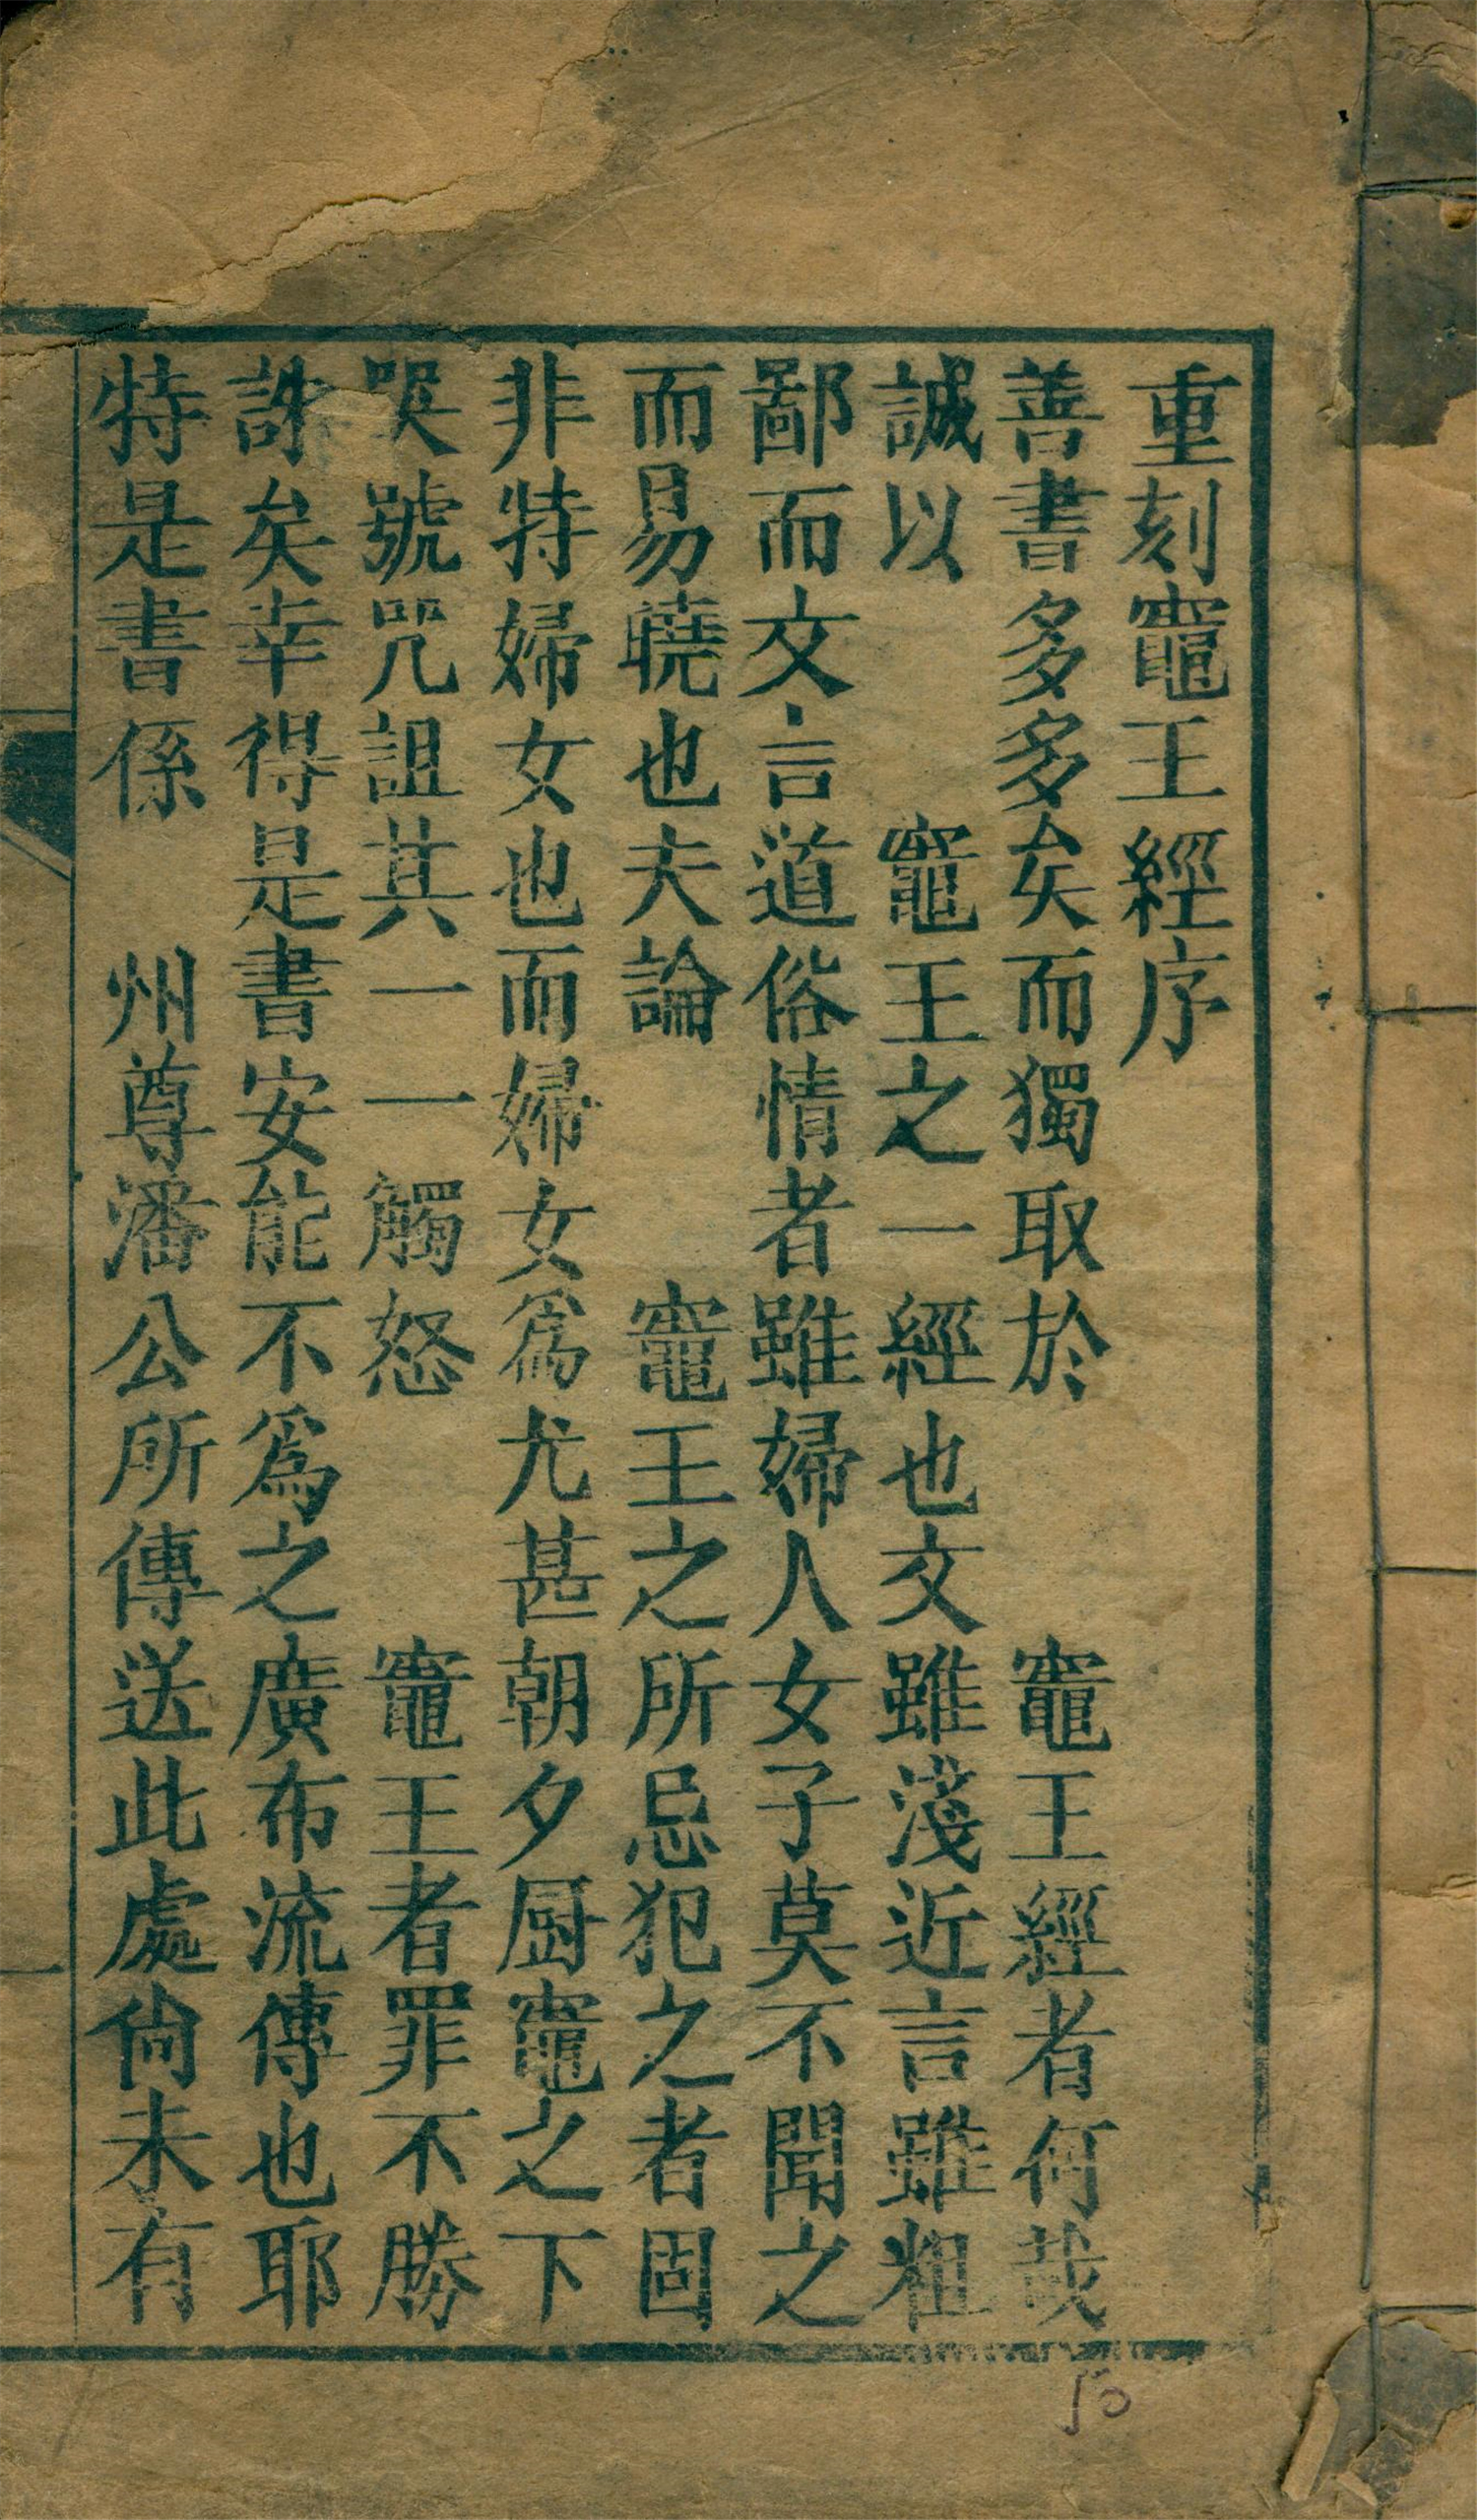 重刻竈王經序
善書多多矣而獨取於　　竈王經者何哉
誠以　　竈王之一經也文雖淺近言雖粗
鄙而文言道俗情者雖婦人女子莫不聞之
而易曉也夫論　　竈王之所忌犯之者固
非特婦女也而婦女爲尤甚朝夕厨竈之下
哭號咒詛其一一觸怒　　竈王者罪不勝
誅矣幸得是書安能不爲之廣布流傳也耶
特是書係　州尊潘公所傳送此處尙未有
一
50